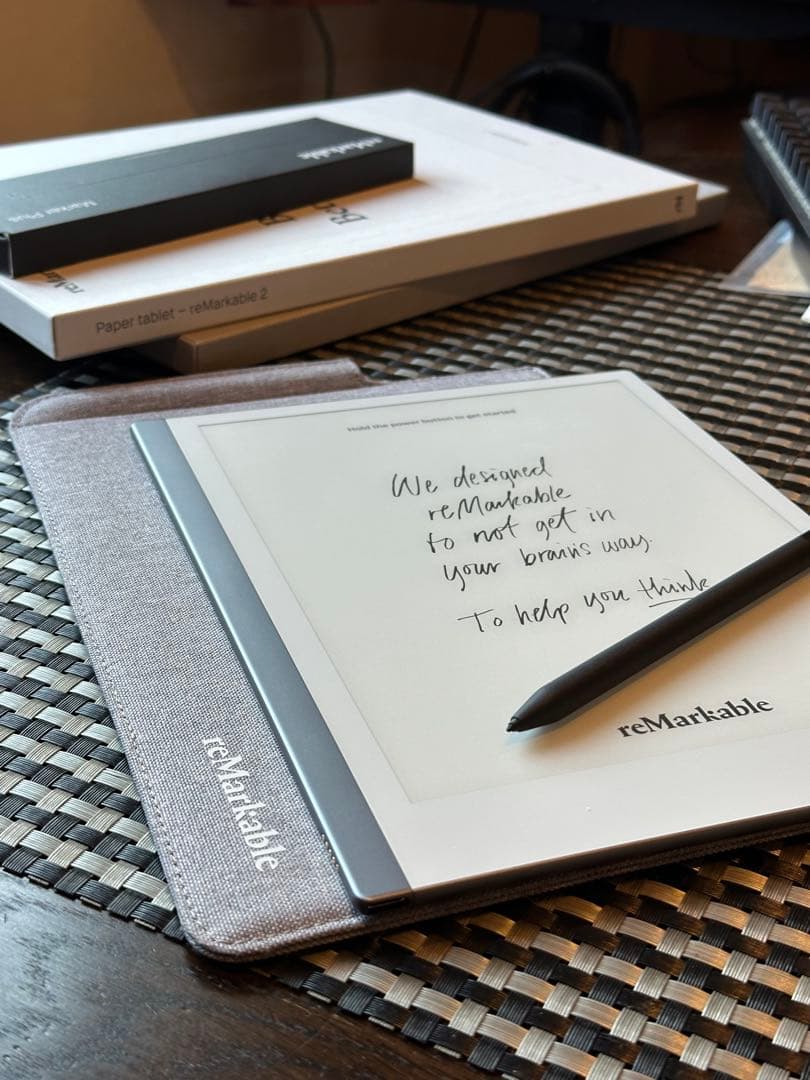 reMarkable
Marker Plus
Paper tablet – reMarkable 2
Hold the power button to get started
We designed
reMarkable
to not get in
your brain's way.
To help you think
reMarkable
reMarkable